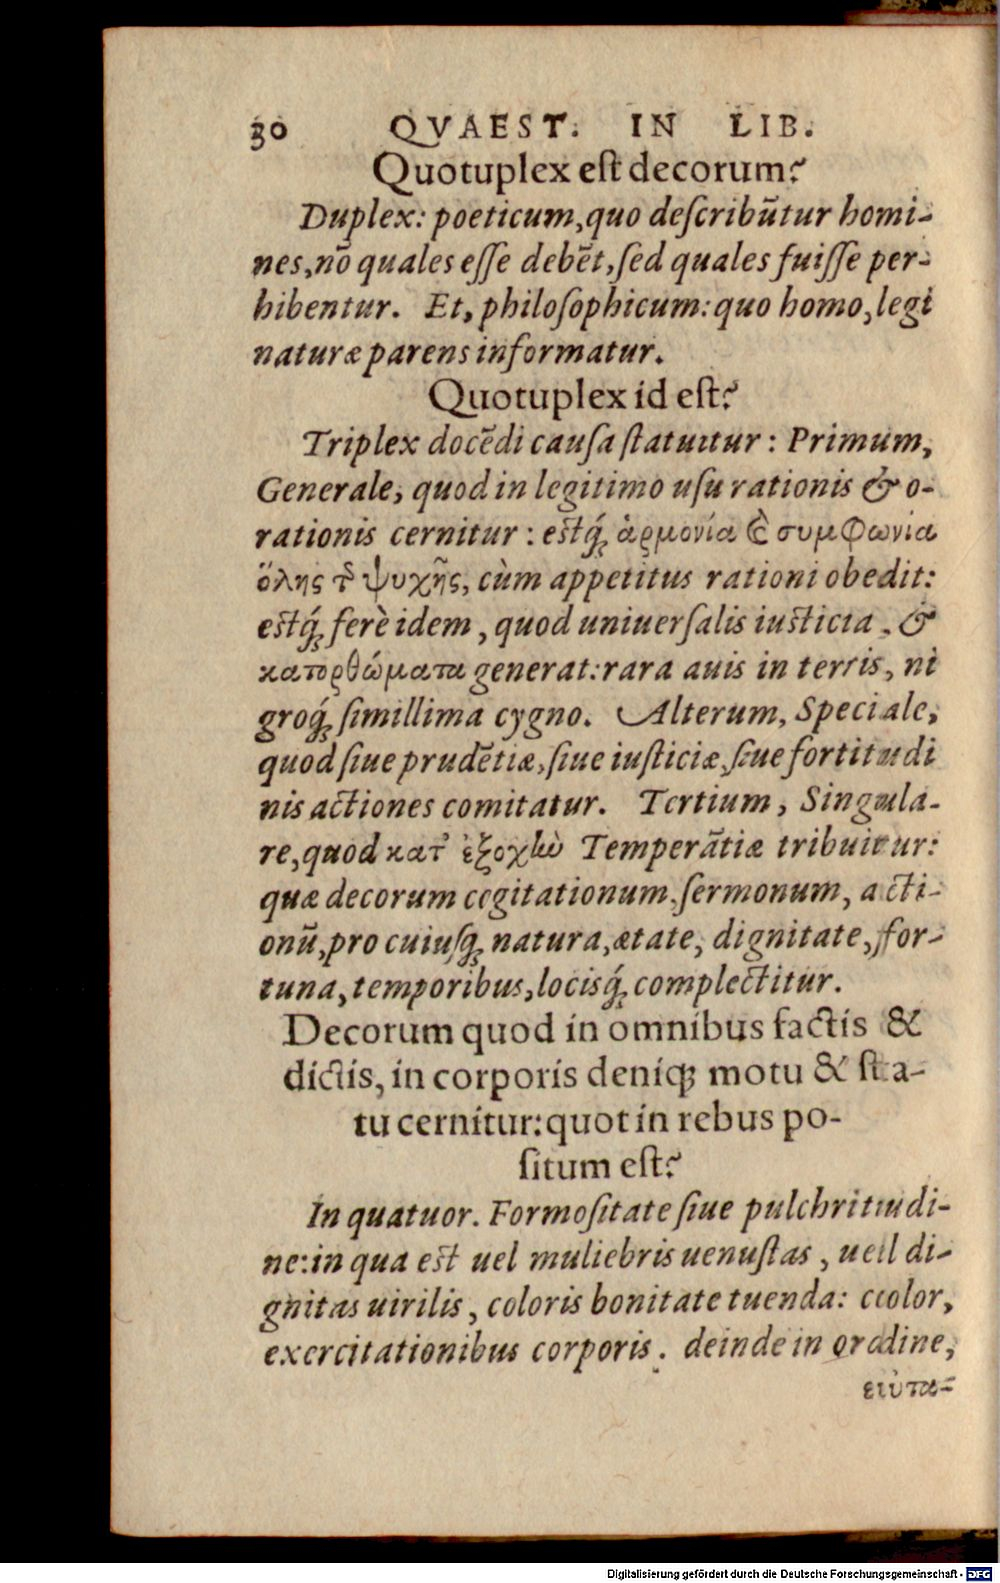 30 QVAEST. IN LIB.
Quotuplex est decorum?
Duplex: poeticum, quo describūtur homi-
nes, nō quales esse debēt, sed quales fuisse per-
hibentur. Et, philosophicum: quo homo, legi
naturæ parens informatur.
Quotuplex id est?
Triplex docēdi causa statuitur: Primum,
Generale, quod in legitimo usu rationis & o-
rationis cernitur: estq́; ἁρμονία καὶ συμφωνία
ὅλης τῆς ψυχῆς, cùm appetitus rationi obedit:
estq́; ferè idem, quod uniuersalis iusticia, &
κατορθώματα generat: rara auis in terris, ni
groq́; simillima cygno. Alterum, Speciale,
quod siue prudētiæ, siue iusticiæ, siue fortitudi
nis actiones comitatur. Tertium, Singula-
re, quod κατ' ἐξοχὼ Temperātiæ tribuitur:
quæ decorum cogitationum, sermonum, acti-
onū, pro cuiusq; natura, ætate, dignitate, for-
tuna, temporibus, locisq́; complectitur.
Decorum quod in omnibus factis &
dictis, in corporis deniq; motu & sta-
tu cernitur: quot in rebus po-
situm est?
In quatuor. Formositate siue pulchritudi-
ne: in qua est uel muliebris uenustas, uel di-
gnitas uirilis, coloris bonitate tuenda: color,
exercitationibus corporis. deinde in ordine,
εὐτα-
Digitalisierung gefördert durch die Deutsche Forschungsgemeinschaft - DFG